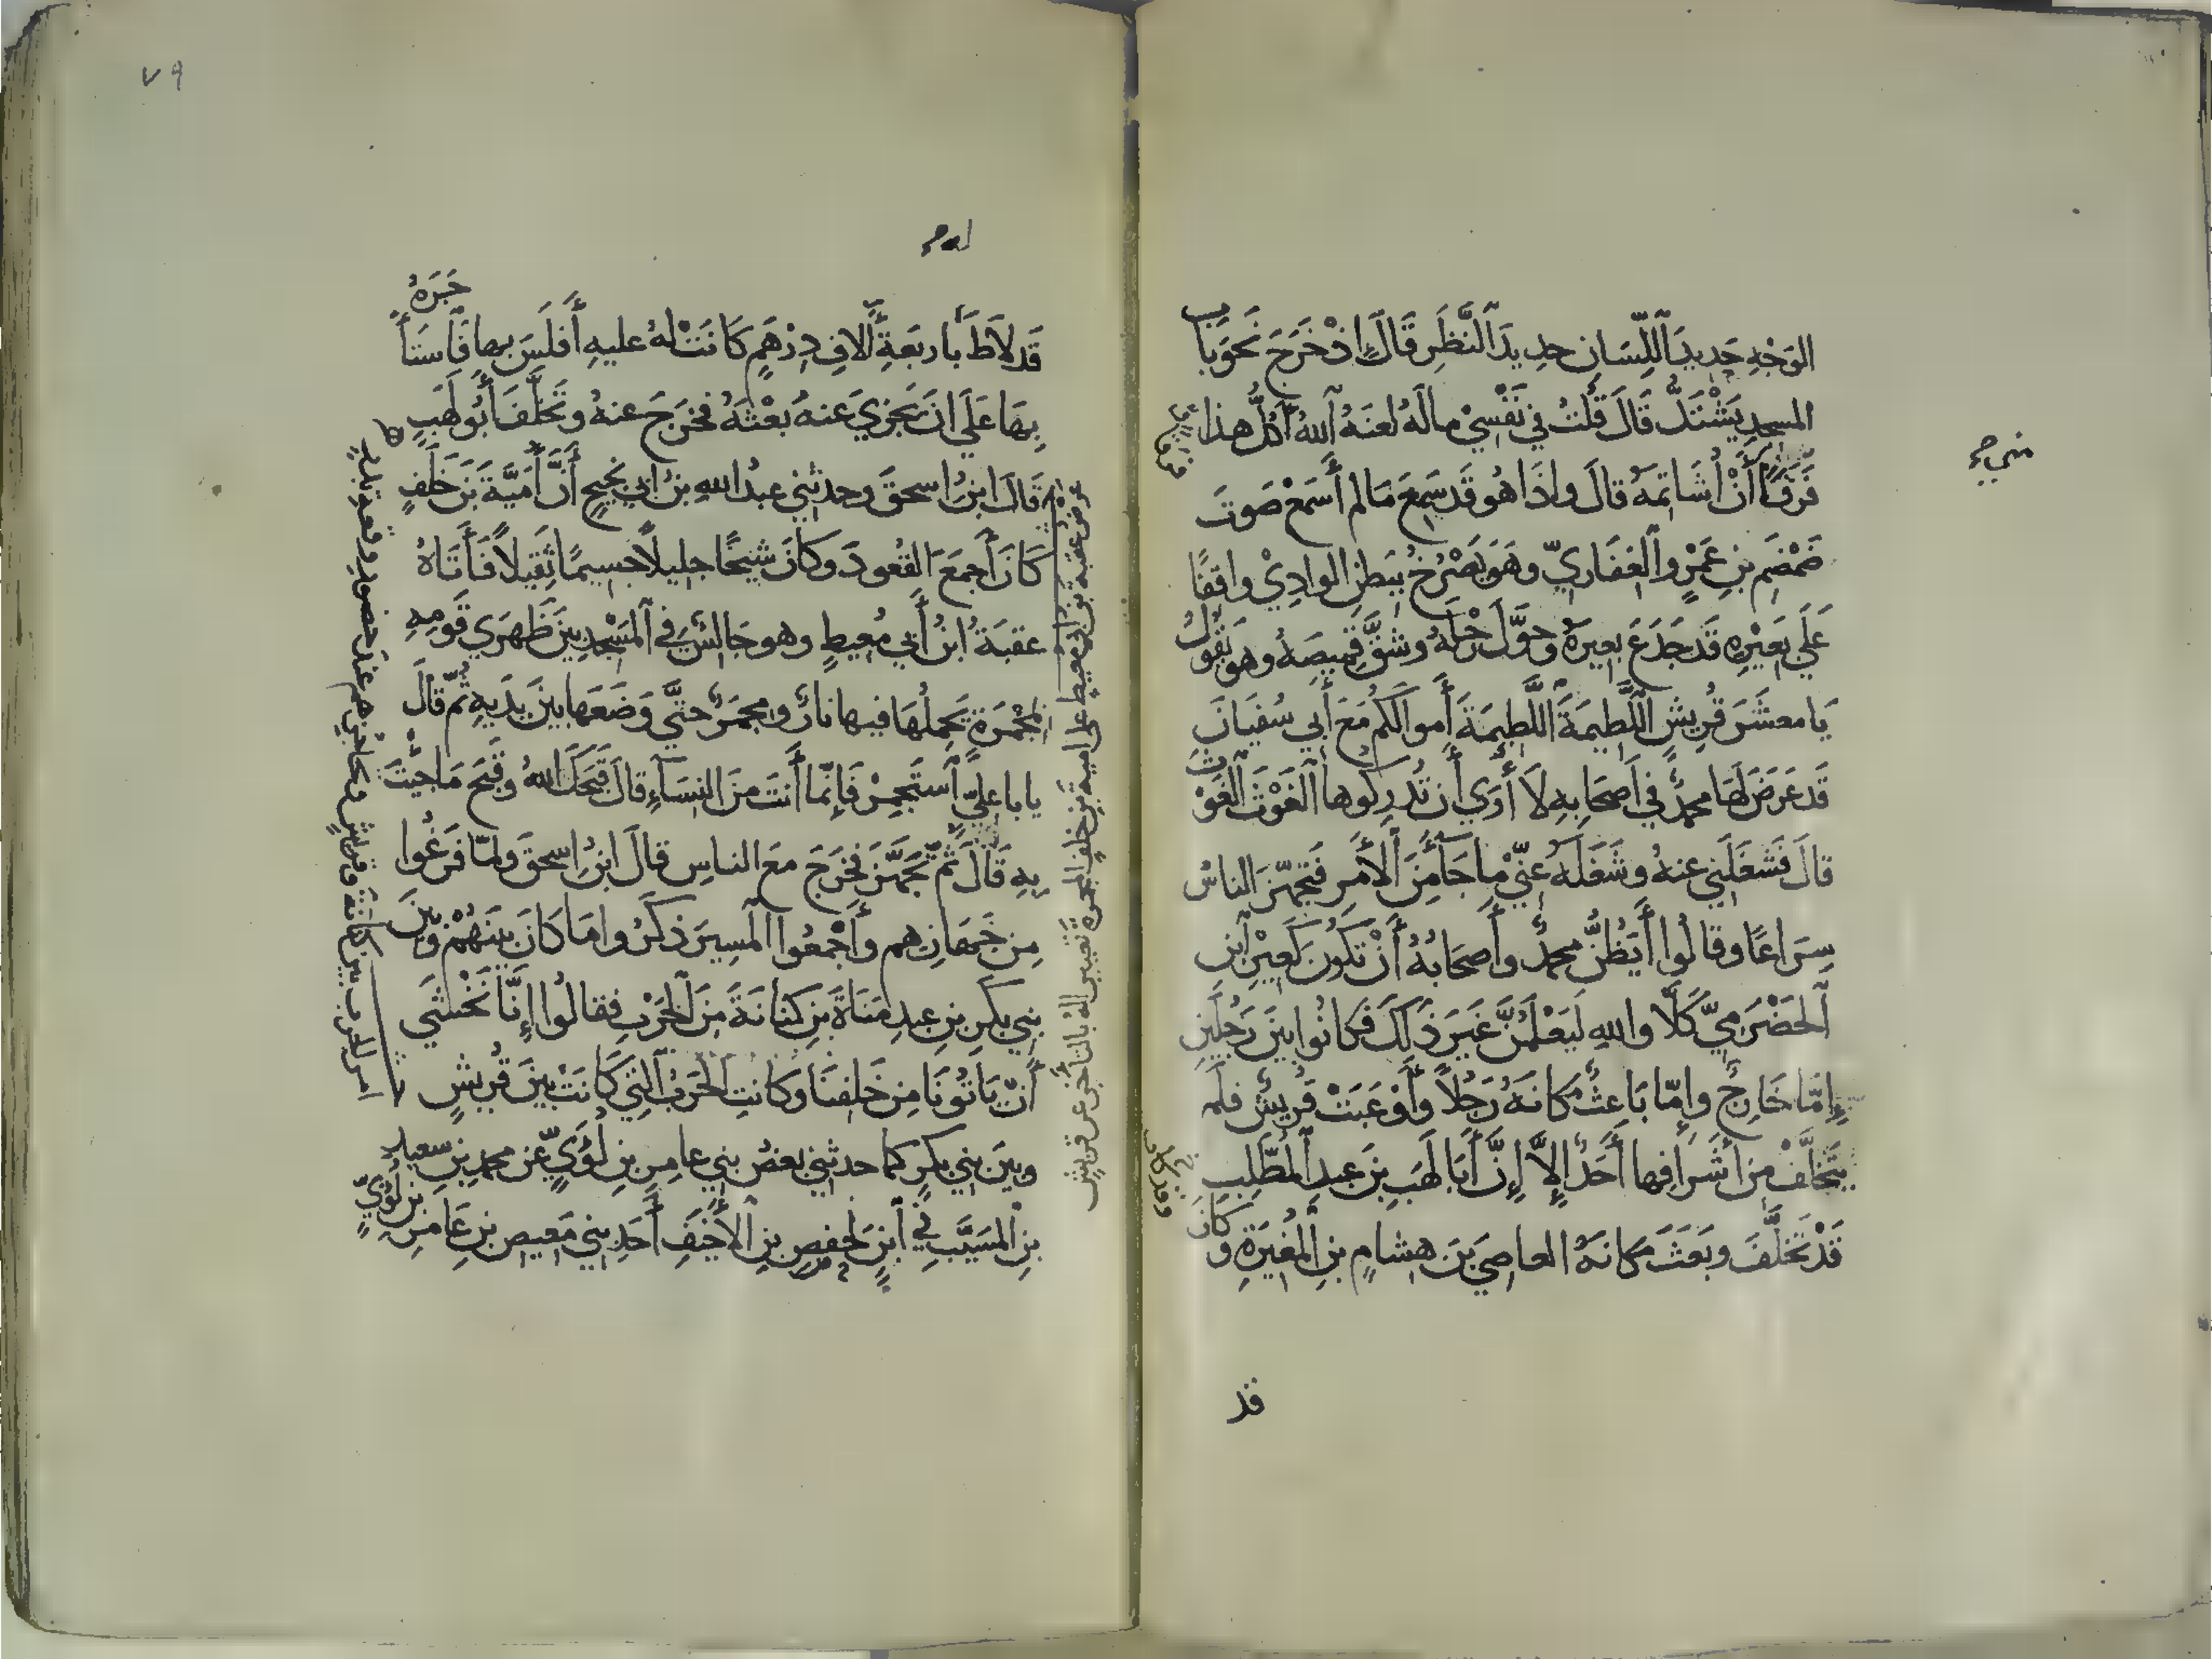 الوَجْهِ حَدِيدَ اللِّسَانِ حدِيدَ النَّظَرِ قَالَ اِذْ خَرَجَ نَحْوَ بَاب
المسجدِ يَشْتَدُّ قَالَ قُلتُ في نَفْسِيْ مالَهُ لعَنَهُ اَللهُ أَكُلُّ هذا
فَرَقًا أَنْ أُشَاتِمَهُ قالَ واذَا هُو قَد سَمِعَ مَا لم أَسْمَعْ صَوتَ
ضَمْضَمِ بنِ عَمْرٍو الغفَاريِّ وهَوَ يَصْرُخُ ببَطنِ الوادِيْ واقفًا
عَلَي بَعِيْرِه قَد جَدَعَ بعِيرَهُ وحَوَّلَ رَحْلَهُ وشقَّ قَمِيصَهُ وهو يَقُولُ
يَا معشَرَ قُرِيشٍ اللَّطِيمَةَ اللَّطِيمَةَ أَموالَكُم مَعَ أَبي سُفيَانَ
قَد عَرَضَ لَهَا محمدٌ في أَصحَابِهِ لاَ أُرَي أَن تُدرِكُوها الغَوْثَ الغَوْث
قالَ فَشَغَلَنِي عنهُ وشَغَلَهُ عنِّي ما جَآ مِنَ الأَمرِ فَتَجهّزَ الناسُ
سِرَاعًا وقالُوا أَيَظُنُّ محمدٌ وأَصحَابُهُ أَنْ تكُونَ كَعِيْرِ ابنِ
اَلحَضْرَمِيِّ كَلَّا واللهِ ليَعْلَمُنَّ غَيرَ ذَلكَ فكانُوا بينَ رَجُلَينِ
إِمَّا خَارِجٌ وإِمّا بَاعِثٌ مكَانَهُ رَجُلاً وأَوْعَبَتْ قُرَيشٌ فلَم
يتَخَلَّفْ مِن أَشرَافِها أَحَدٌ إِلاَّ إِنَّ أَبَا لَهَبِ بنَ عبدِ المطَّلِبِ
قَدْ تَخَلَّفَ وبَعَثَ مكَانَهُ العاصِيَ بنَ هِشامٍ بنِ المُغِيرَةِ وكَانَ
قد
٧٩
قَد لاَطَ بأربعَةِ أَلافِ دِرْهَمٍ كَانَتْ لهُ عليهِ أَفلَسَ بها فَاستَأجَرَهُ
بِهَا عَلَي انَ يَجزِيَ عَنهُ بَعْثَهُ فخَرَجَ عنهُ وتَخَلَّفَ أَبُو لَهَبٍ
قَالَ ابنُ اسحقَ وحدثني عبدُ اللهِ بنُ ابي نَجِيحٍ أَنَّ أُميَّةَ بنَ خَلَفٍ
كَانَ أَجمَعَ القُعودَ وكَانَ شَيخًا جليلاً جَسِيمًا ثَقِيلاً فَأَتَاهُ
عقبَةُ ابنُ أَبي مُعيطٍ وهو جَالسٌ في المَسْجِدِ بَينَ ظَهرَي قَومِهِ
بمِجْمَرَةٍ يَحمِلُهَا فيها نارٌ ومِجمَرٌ حتَّي وَضَعَها بينَ يدَيهِ ثُمّ قالَ
يا با عليٍّ اَستَجمِرْ فَإنّمَا أَنتَ منَ النسَاءِ قالَ قَبَحَكَ اللهُ وقَبَحَ مَا جِئتَ
بِهِ قَالَ ثُمَّ تَجَهَّزَ فخَرَجَ معَ الناسِ قالَ ابنُ اسحقَ ولمّا فَرَغُوا
مِن جَهَازِهِم وأَجْمَعُوا المَسِيرَ ذَكَرُوا مَا كانَ بَينَهُمْ وبينَ
بني بكرِ بنِ عبدِ مَنَاةَ بنِ كنَانَةَ مِنَ الحَرْبِ فقالُوا إِنَّا نَخْشَي
أَنْ يَأتُونَا مِن خَلفِنَا وكَانتِ الحَرْبُ التي كَانَتْ بينَ قُرَيشٍ
وبَينَ بني بكرٍ كما حدثني بعضُ بني عامرِ بنِ لُؤَيٍّ عَن محمدِ بنِ سعيدِ
بنِ المسَيَّبِ في ابنٍ لحفصِ بنِ الأَخيَفِ أَحَدِ بني مَعيصِ بنِ عَامرِ بنِ لُؤَيٍّ
عرض عقبة بن ابي معيط على امية بن خلف المجمرة
امر الحرب بين كنانة وقريش وتحاجزهم عند حضور وقعة بدر